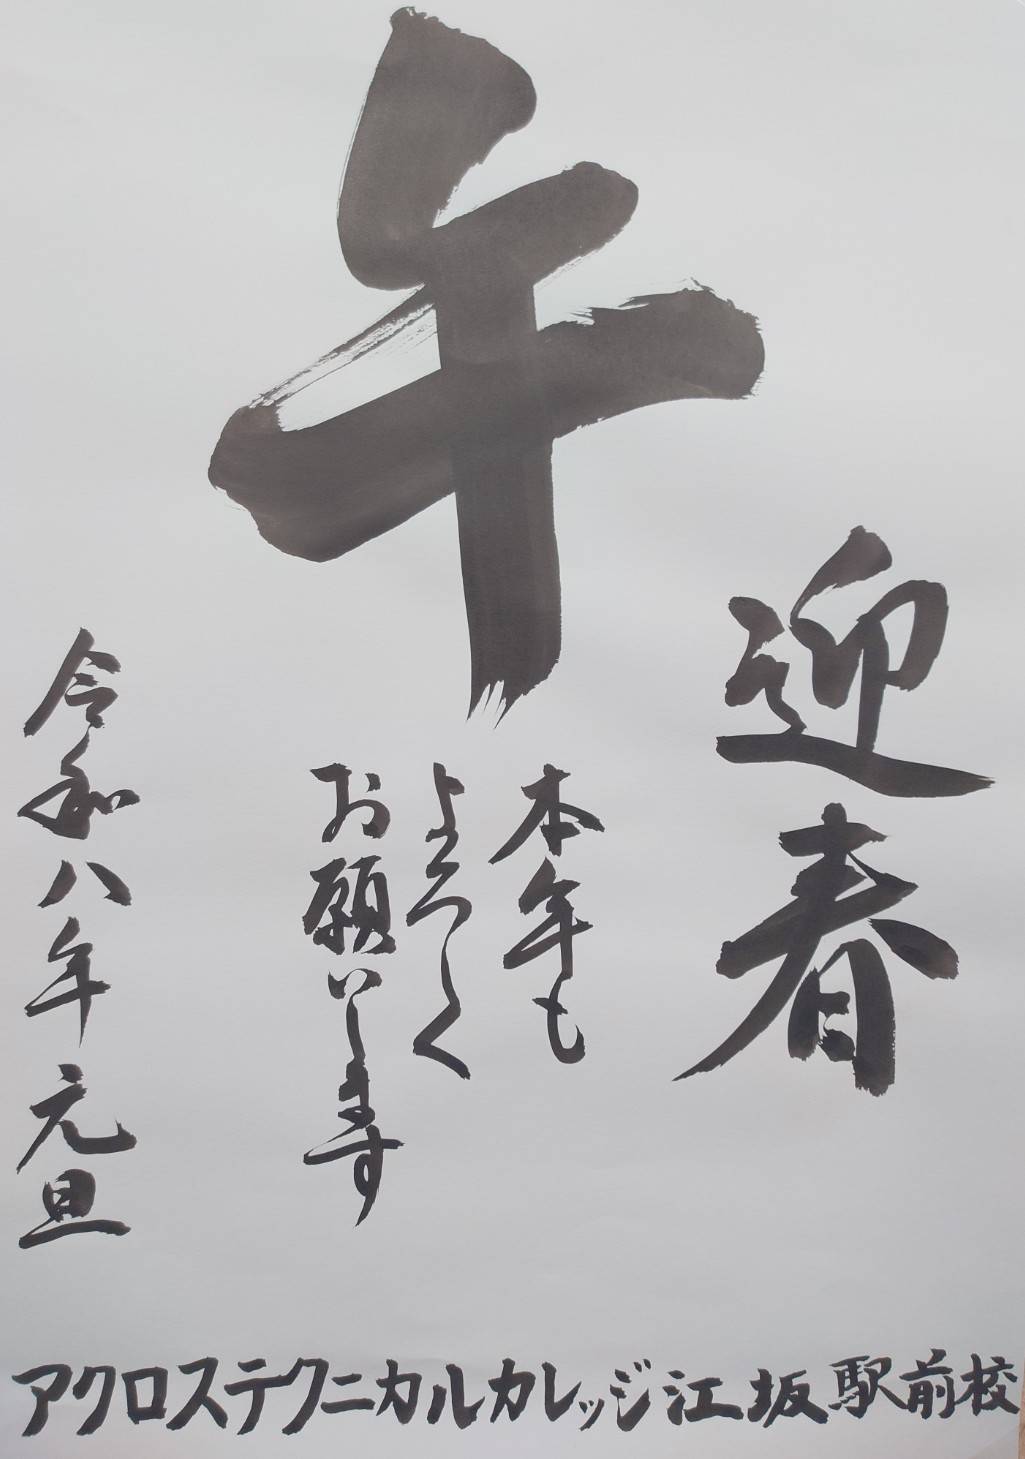 午
迎春
本年も
よろしく
お願いします
令和八年元旦
アクロステクニカルカレッジ江坂駅前校